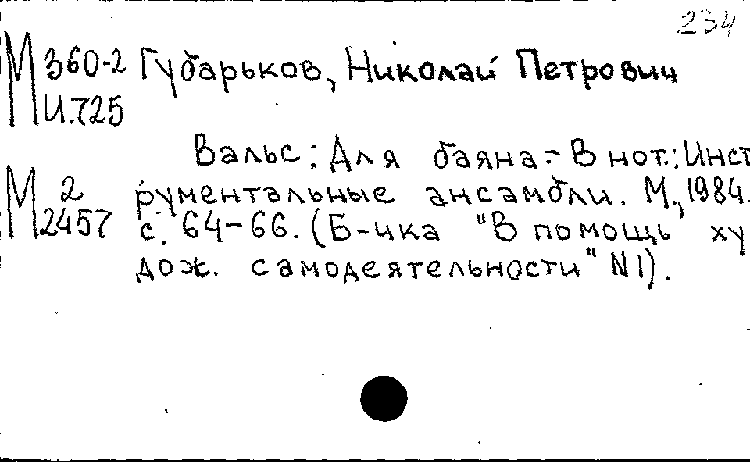 234
М 360-2 Губарьков, Николай Петрович
И.725
Вальс: Для баяна.- В нот.: Инст
М 2 рументальные ансамбли. М., 1984.
2457 с. 64-66. (Б-чка "В помощь ху
дож. самодеятельности" N1).